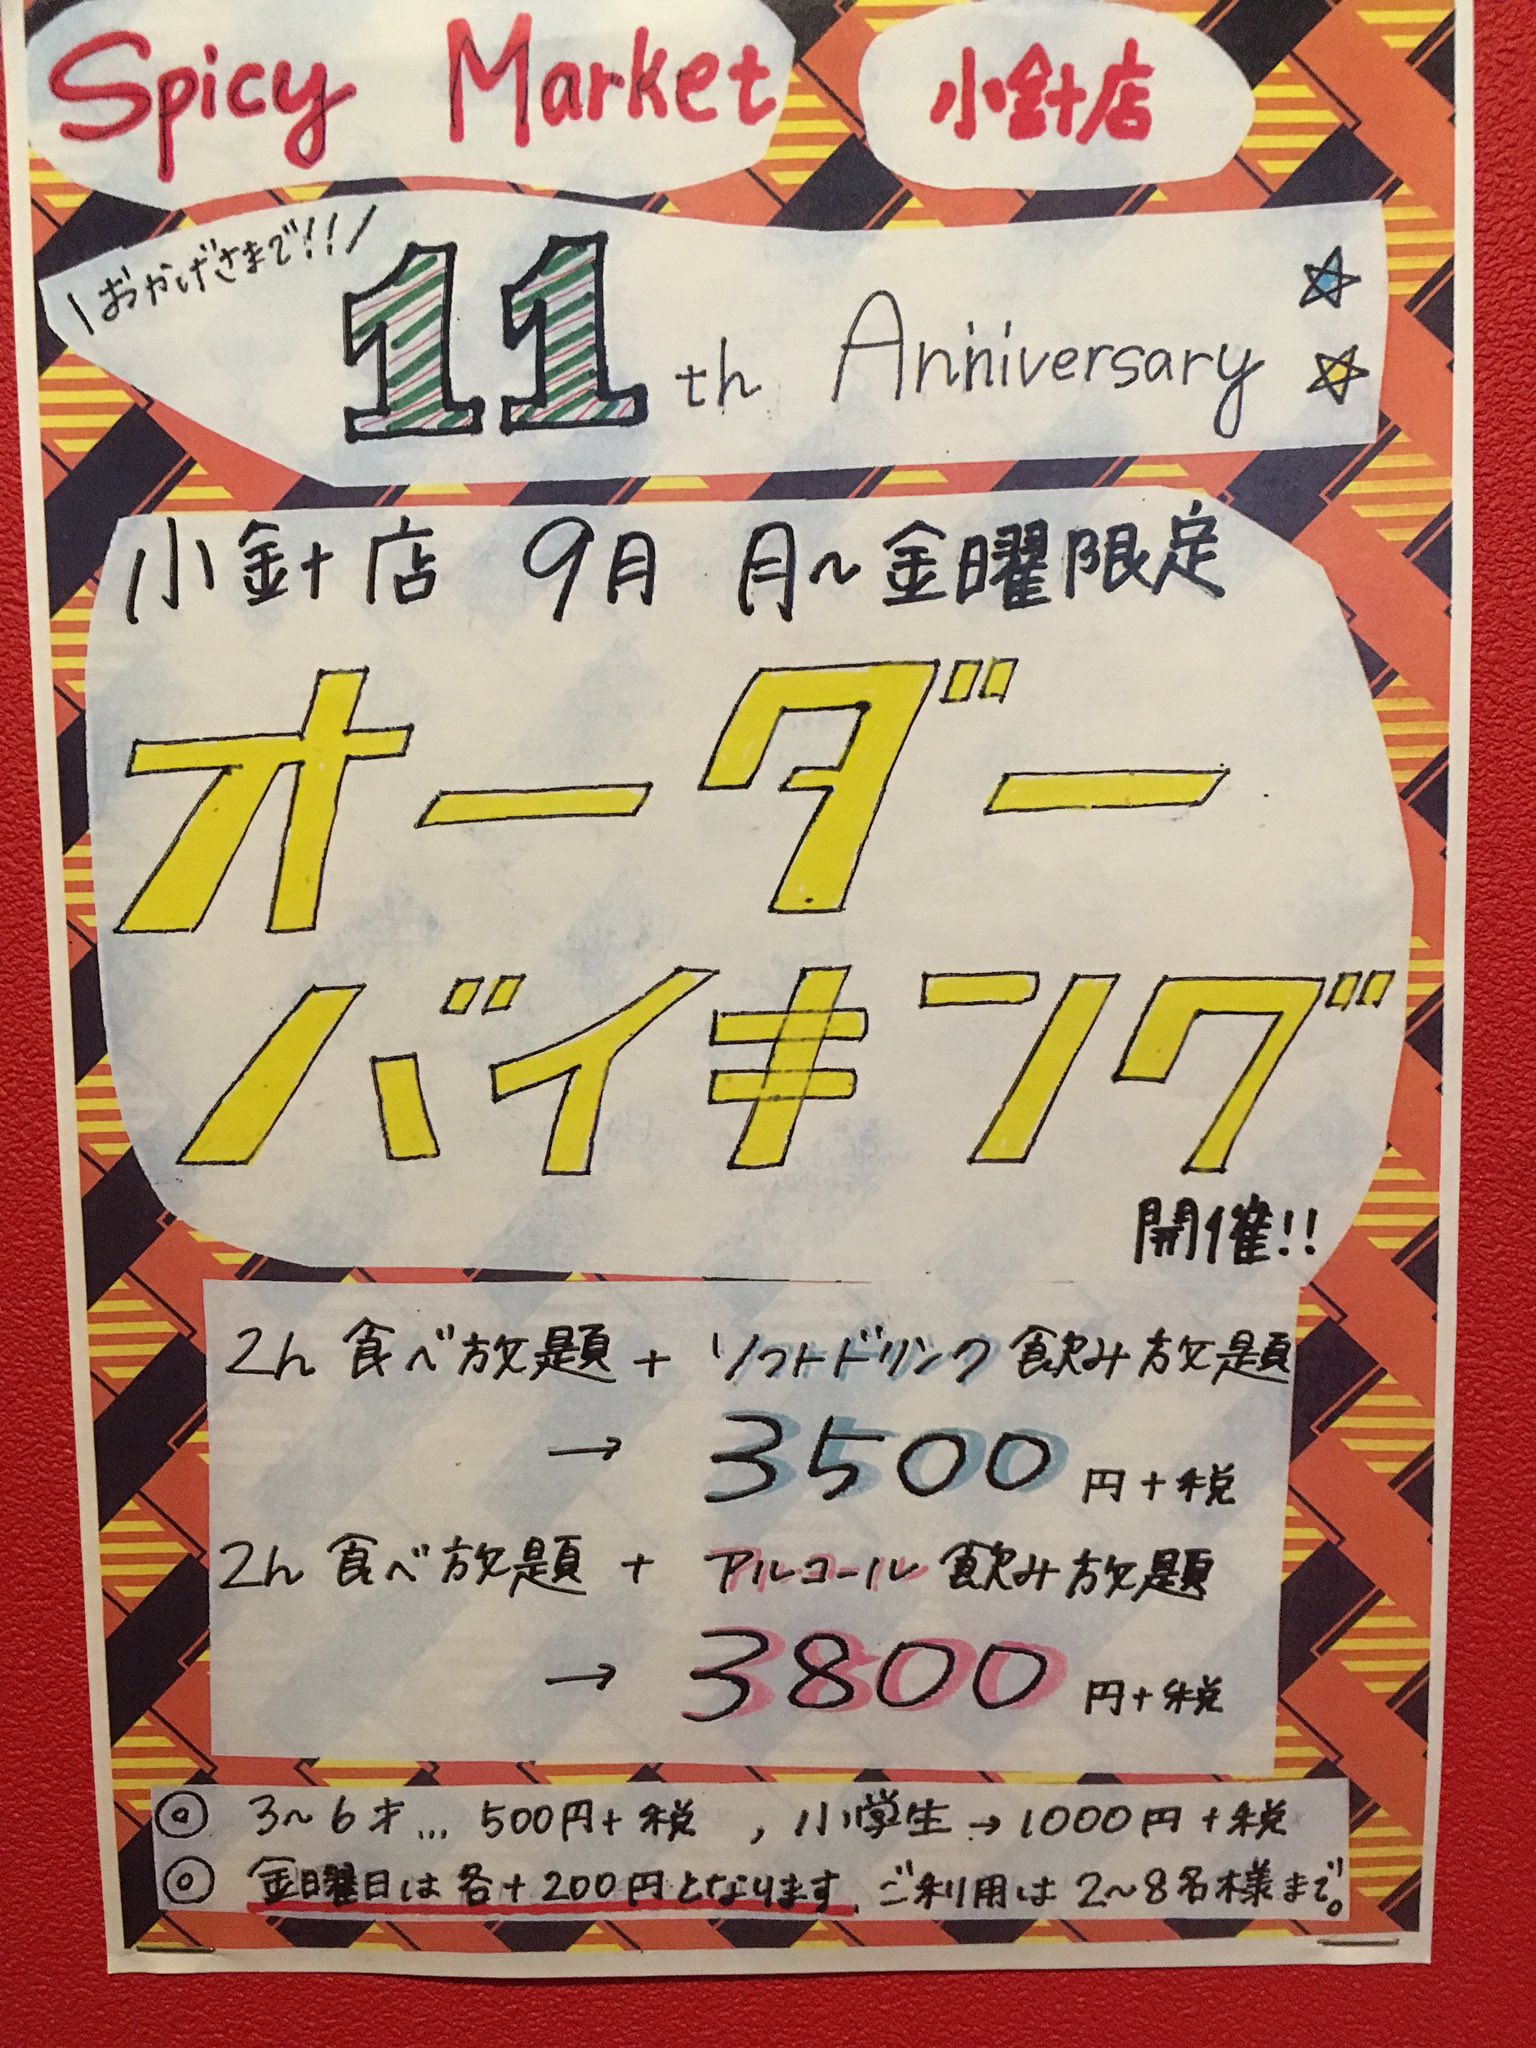 Spicy Market 小針店
\おかげさまで!!/
11th Anniversary ☆☆
小針店 9月 月~金曜限定
オーダー
バイキング
開催!!
2h 食べ放題 + ソフトドリンク 飲み放題
→ 3500 円+税
2h 食べ放題 + アルコール 飲み放題
→ 3800 円+税
◎ 3~6才... 500円+税 , 小学生→1000円+税
◎ 金曜日は各+200円となります。ご利用は2~8名様まで。